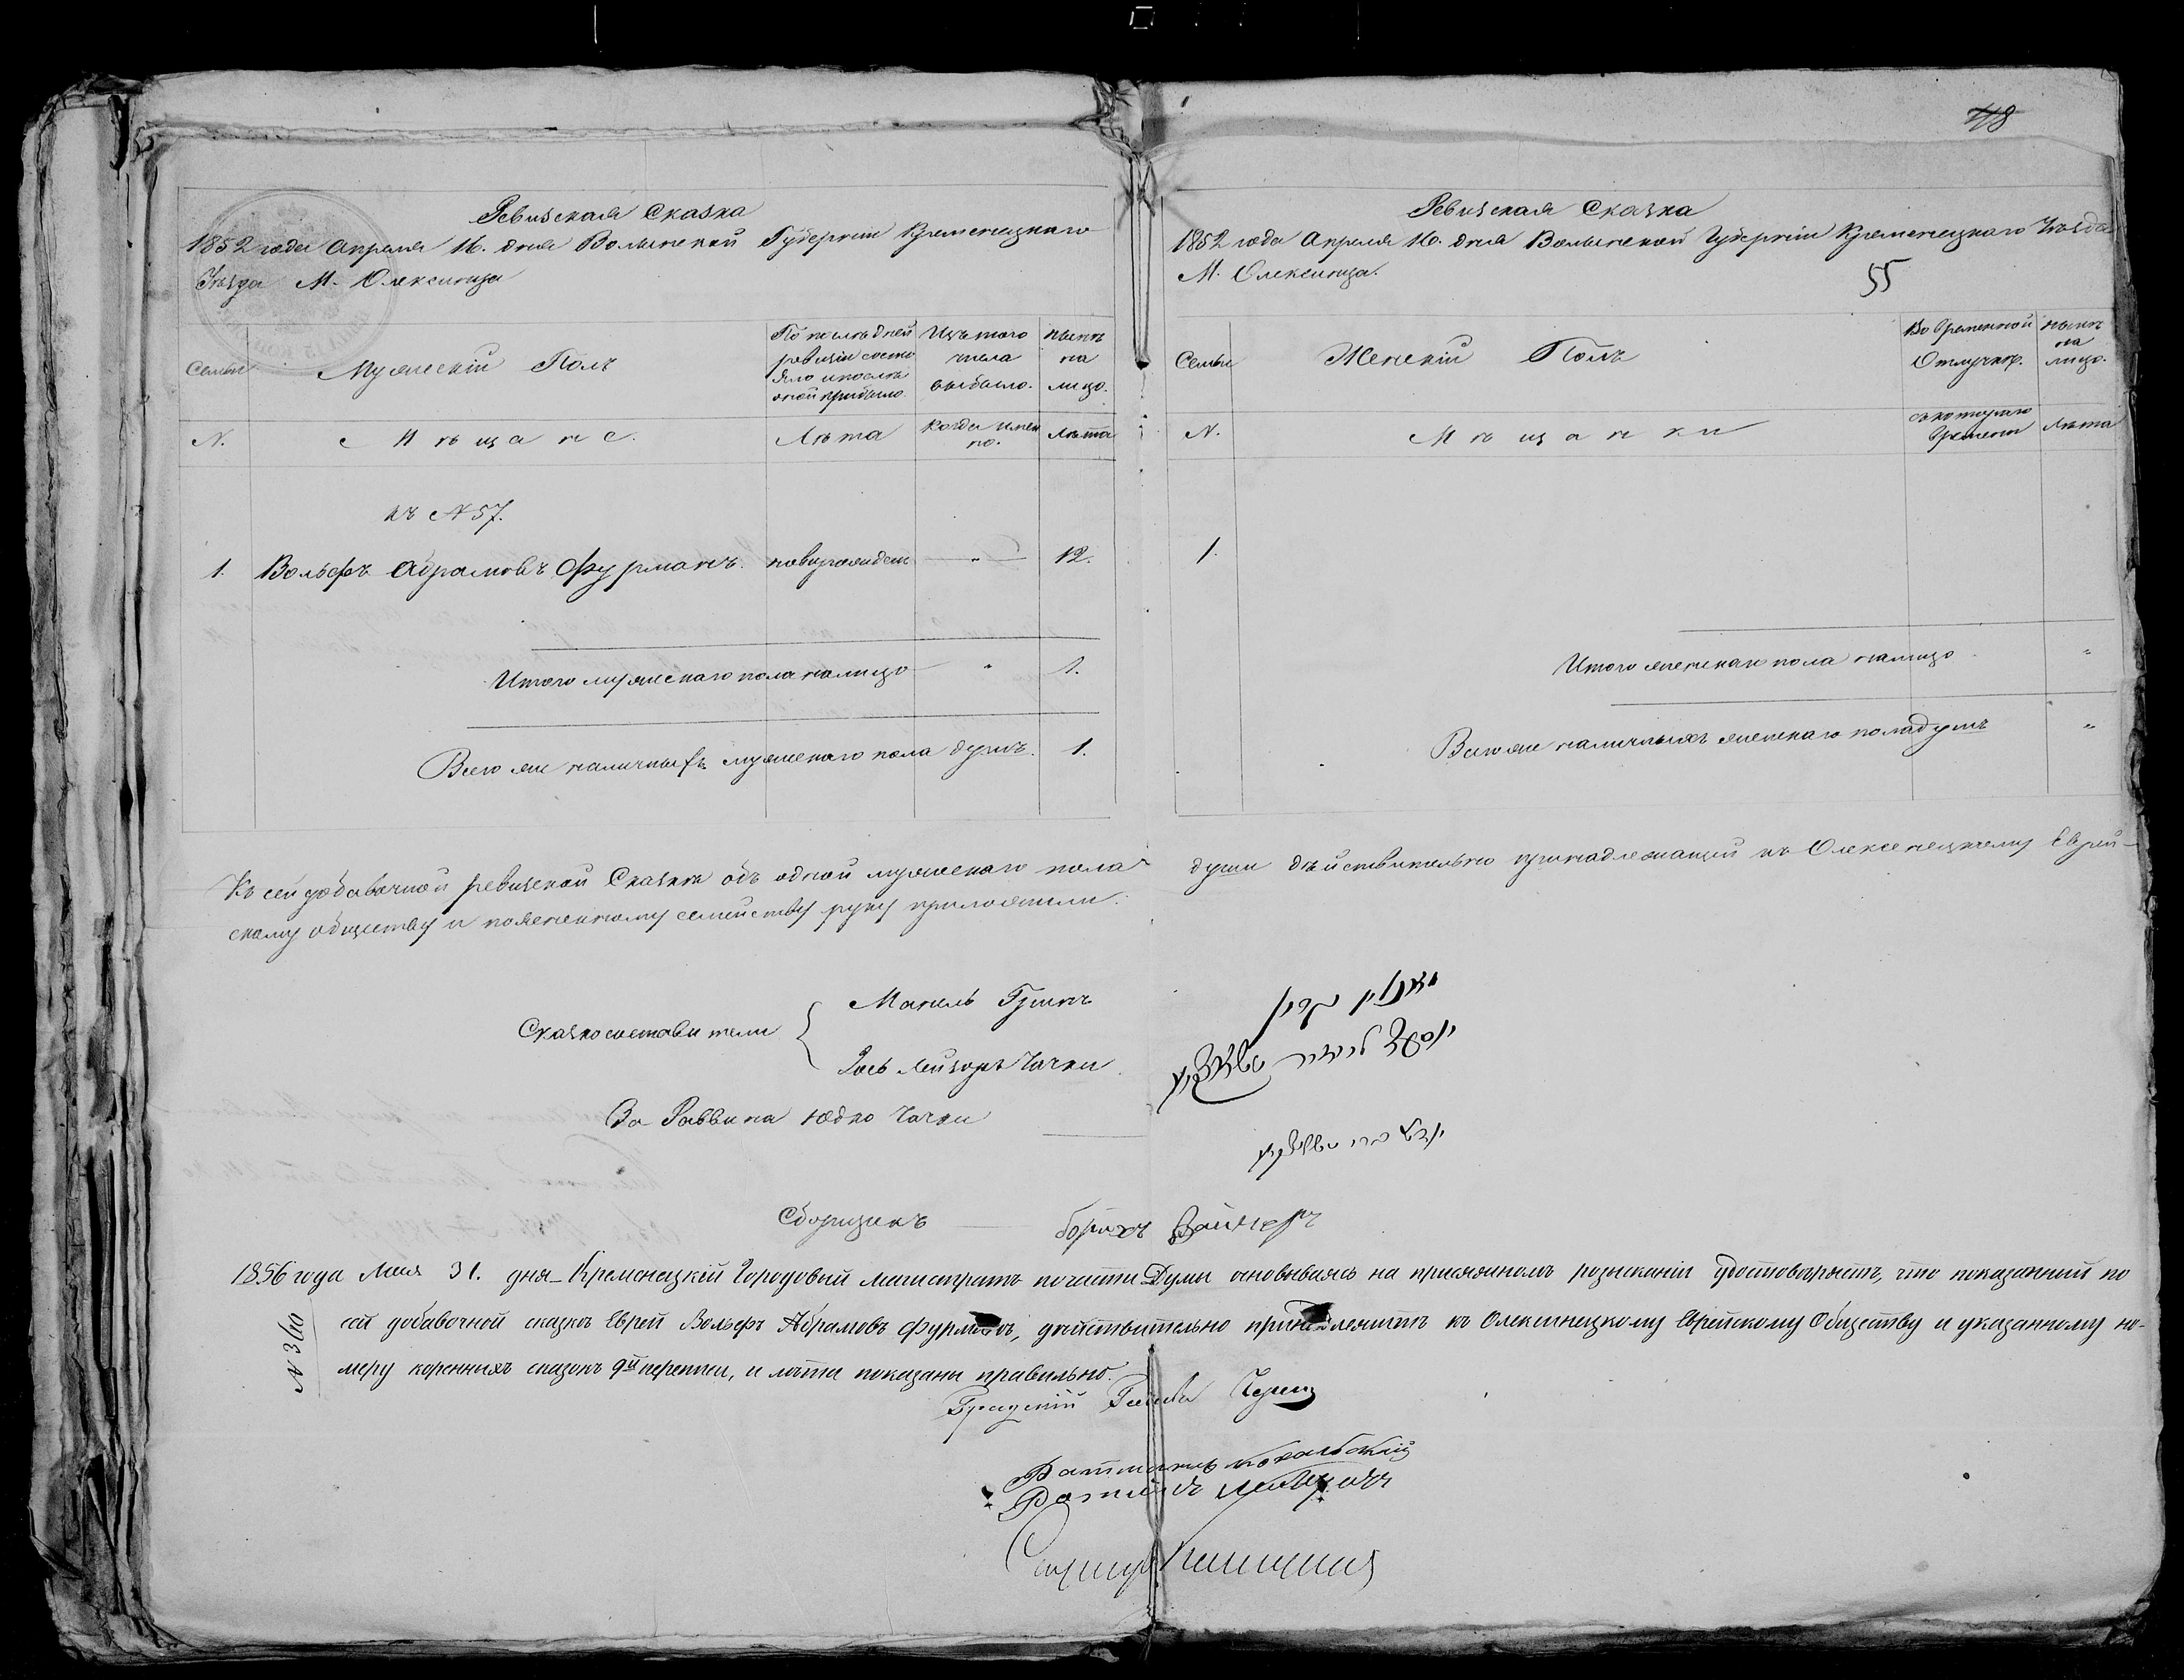 48
Ревизская Сказка
1852 года Апреля 16. дня Волынской Губернии Кременецкаго
Уѣзда М. Олексинца
Семьи
Мужескій Полъ
По послѣдней ревизіи состояло и послѣ оной прибыло.
Изъ того числа выбыло.
Нынѣ на лицо.
N.
Мѣщане.
Лѣта
Когда именно.
Лѣта
къ N 57.
1. Вольфъ Абрамовъ Фурманъ. новорожденъ — „ — 12.
Итого мужескаго пола налицо „ 1.
Всего же наличныхъ мужескаго пола душъ. 1.
Ревизская Сказка
1852 года Апреля 16. дня Волынской Губерніи Кременецкаго Уѣзда
М. Олексинца.
55
Семьи
Женскій Полъ
Во временной отлучкѣ.
Нынѣ на лицо.
N.
Мѣщанки
съ котораго времени
Лѣта
1.
Итого женскаго пола налицо „
Всего же наличныхъ женскаго пола душъ „
Къ сей добавочной ревизской Сказкѣ объ одной мужескаго пола души дѣйствительно принадлежащей къ Олексенецкому Еврей-
скому обществу и поясненному семейству руку приложили.
Сказкосоставители
Манель
Лейзоръ Чачки
За Раввина Юдко Чачки
Сборщикъ — Борохъ Вайнеръ
1856 года Мая 31. дня Кременецкій Городовый Магистратъ Думы основываясь на присяжномъ розысканіи удостовѣряетъ, что показанный по
сей добавочной сказкѣ Еврей Вольфъ Абрамовъ Фурманъ, дѣйствительно принадлежитъ къ Олексинецкому Еврейскому Обществу и указанному но-
меру коренныхъ сказокъ 9й переписи, и лѣта показаны правильно.
N 360
Градскій Глава
Ратманъ
Ратманъ